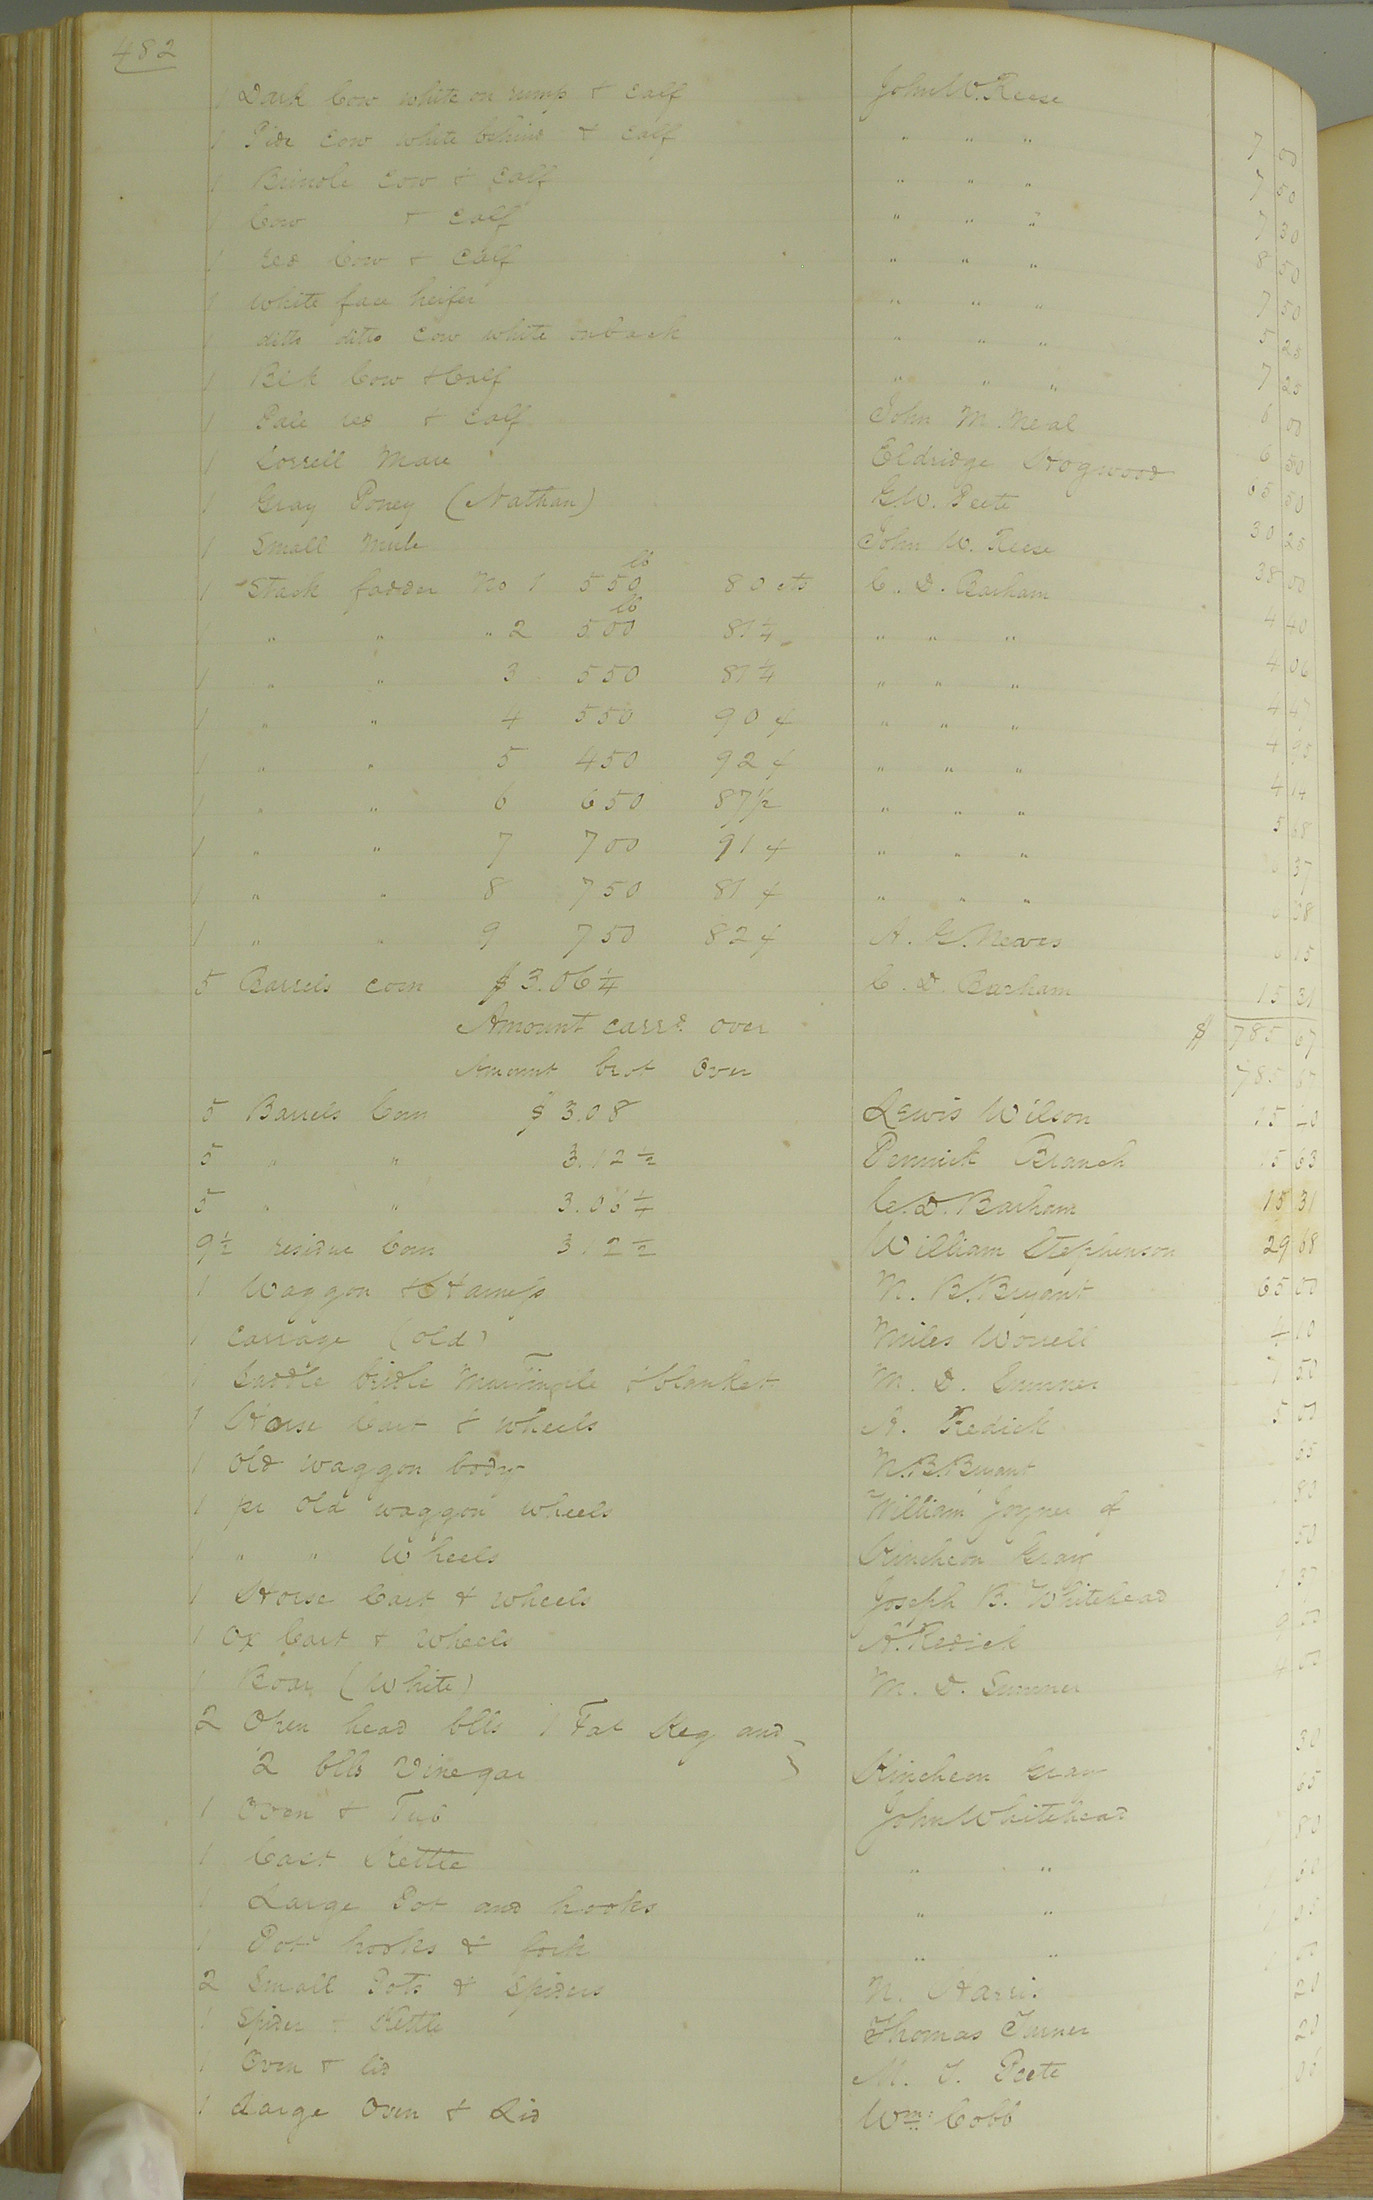 482
1 Dark Cow white on rump & calf John W. Reese 7 00
1 Pide Cow white behind & calf " " " 7 50
1 Brindle Cow & Calf " " " 7 50
1 Cow & Calf " " " 8 50
1 red Cow & Calf " " " 7 50
1 white face heifer " " " 5 25
1 ditto ditto Cow white on back " " " 7 25
1 Blk Cow & Calf " " " 6 00
1 Pale red & Calf John M. Meal 6 50
1 Sorrell Mare Eldridge Hogwood 50
1 Gray Poney (Nathan) G.W. Peete 30 25
1 Small Mule John W. Reese 38 00
1 Stack fodder No 1 550 lb 80 cts C. D. Barham 4 40
" " " 2 500 lb 81 1/4 " " " 4 06
1 " " 3 550 81 1/4 " " " 4 47
1 " " 4 550 90 ¢ " " " 4 95
1 " " 5 450 92 ¢ " " " 4 14
1 " " 6 650 87 1/2 " " " 5 68
1 " " 7 700 91 ¢ " " " 6 37
1 " " 8 750 81 ¢ " " " 6 08
1 " " 9 750 82 ¢ A. G. Neaves 6 15
5 Barrels corn $ 3.06 1/4 C. D. Barham 15 31
Amount carrd. over $ 785 67
Amount brot Over 785 67
5 Barrels Corn $ 3.08 Lewis Wilson 15 40
5 " " 3.12 1/2 Pennick Branch 15 63
5 " " 3.06 1/4 C. D. Barham 15 31
9 1/2 residue Corn 3.12 1/2 William Stephenson 29 68
1 Waggon & Harness N. B. Bryant 65 00
1 Carrage (old) Miles Worrell 10
1 Saddle bridle Martingale & blanket M. D. Sumner 7 50
1 Horse Cart & wheels A. Redick 5 00
1 old waggon body N. B. Bryant 65
1 pr old waggon wheels William Joyner of 80
1 " " Wheels Kincheon Gray 50
1 Horse Cart & wheels Joseph B. Whitehead 1 37
1 Ox Cart & Wheels A. Redick 9 00
1 Boar (White) M. D. Sumner 4 00
2 Open head blls 1 Fat Keg and
2 blls Vinegar Kincheon Gray 30
1 Oven & Tub John Whitehead 65
1 Cast Kettle " " 80
1 Large Pot and hooks " "
1 Pot hooks & fork " "
2 Small Pots & Spiders N. Harris
1 Spider & Kettle Thomas Turner 20
1 Oven & lid M. J. Peete 20
1 Large Oven & Lid Wm: Cobb